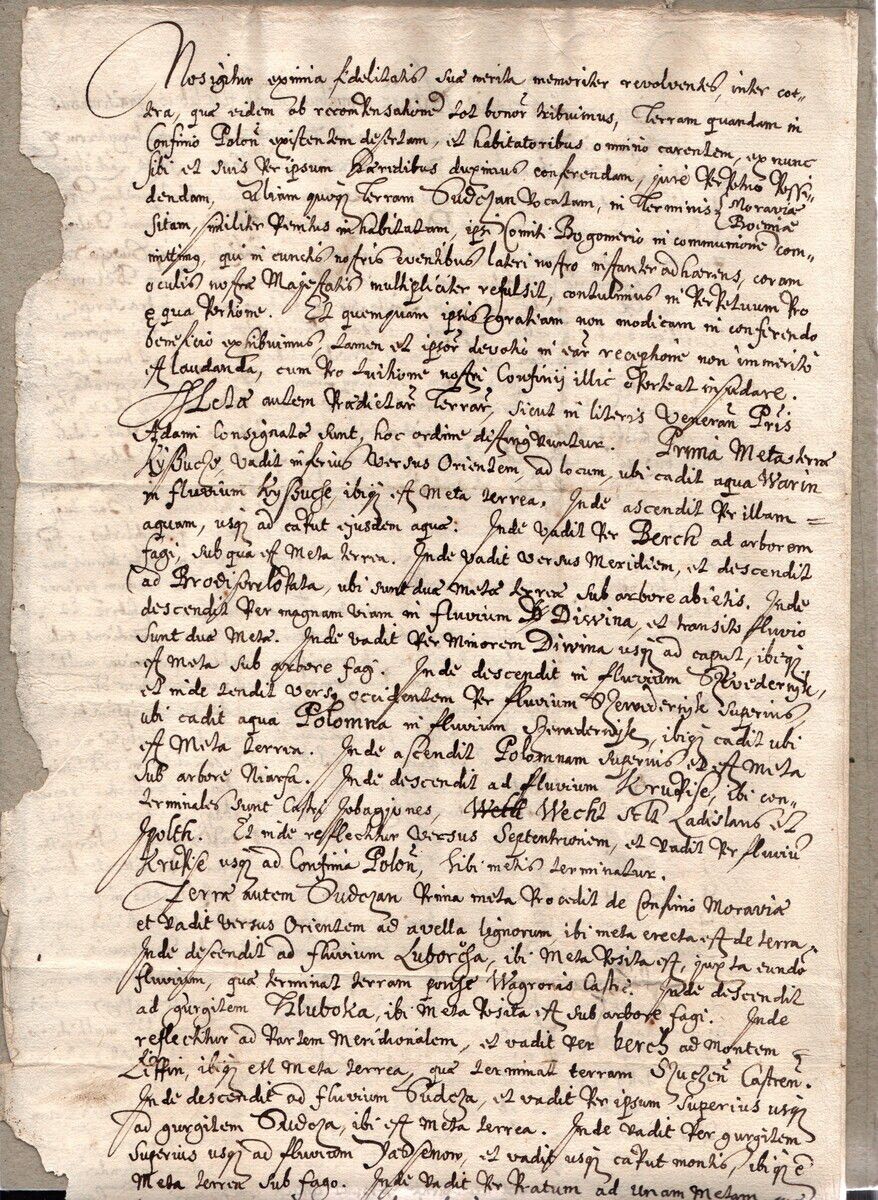 Nos igitur eximia fidelitatis suæ merita memoriter revolventes, inter cæt-
tera, quæ eidem ob recompensatione tot bonor tribuimus, Terram quandam in
Confinio Polon existentem desertam, et habitatoribus omnino carentem, ex nunc
sibi et suis per ipsum Hæredibus duximus conferendam, jure perpetuo possi-
dendam, Aliam quoq Terram Sudczan vocatam, in Terminis Moraviæ Boemiæ
sitam, similiter penitus inhabitatam, ipsi Comiti Bogomerio in communione com-
mittimus, qui in cunctis nostris eventibus lateri nostro instanter adhærens, coram
oculis nostræ Majestatis multipliciter refulsit, contulimus in perpetuum pro
æqua portione. Et quemquam ipsis gratiam non modicam in conferendo
beneficio exhibuimus, tamen et ipsor devotio in ear receptione non immerito
est laudanda, cum pro tuitione nostri Confinij illic oporteat insudare.
Metæ autem prædictar Terrar, sicut in literis Veneran Pris
Adami consignatæ sunt, hoc ordine distinguuntur. Prima Meta terræ
Kysucze vadit inferius versus Orientem, ad locum, ubi cadit aqua Warin
in fluvium Kysucze, ibiq est Meta terrea. Inde ascendit per illam
aquam, usq ad caput ejusdem aquæ. Inde vadit per Berch ad arborem
fagi, sub qua est Meta terrea. Inde vadit versus Meridiem, et descendit
ad Brodisrelopata, ubi sunt duæ Metæ terreæ sub arbore abietis. Inde
descendit per magnam viam in fluvium Diwina, et transito fluvio
sunt duæ Meta. Inde vadit per Minorem Diwina usq ad caput, ibiq
est Meta sub arbore fagi. Inde descendit in fluvium Szvedernyk,
et inde tendit versus occidentem per fluvium Szevedernyk superius,
ubi cadit aqua Polomna in fluvium Szevedernyk, ibiq cadit ubi
est Meta terrea. Inde ascendit Polomnam superius et est Meta
sub arbore Niarfa. Inde descendit ad fluvium Krupise, ibi con-
terminales sunt Castri Jobagiones, Wecht Ladislaus et
Ipolth. Et inde reflectitur versus Septentrionem, et vadit per fluviu
Krupise usq ad Confinia Polon, sibi metis terminatur.
Terræ autem Sudczan prima meta procedit de Confinio Moraviæ
et vadit versus Orientem ad avella lignorum, ibi meta erecta est de terra.
Inde descendit ad fluvium Luborcsa, ibi Meta posita est, juxta eundo
fluvium, quæ terminat terram Wagroris Castri. Inde descendit
ad gurgitem Hluboka, ibi meta posita est sub arbore fagi. Inde
reflectitur ad partem Meridionalem, et vadit per berch ad montem
Liffin, ibiq est Meta terrea, quæ terminat terram Szuczen Castren.
Inde descendit ad fluvium Sudcza, et vadit per ipsum superius usq
ad gurgitem Sudcza, ibi est meta terrea. Inde vadit per gurgitem
superius usq ad fluvium Jabsenow, et vadit usq caput montis, ibiq e
Meta terrea sub fago. Inde vadit per pratum ad unam Metam